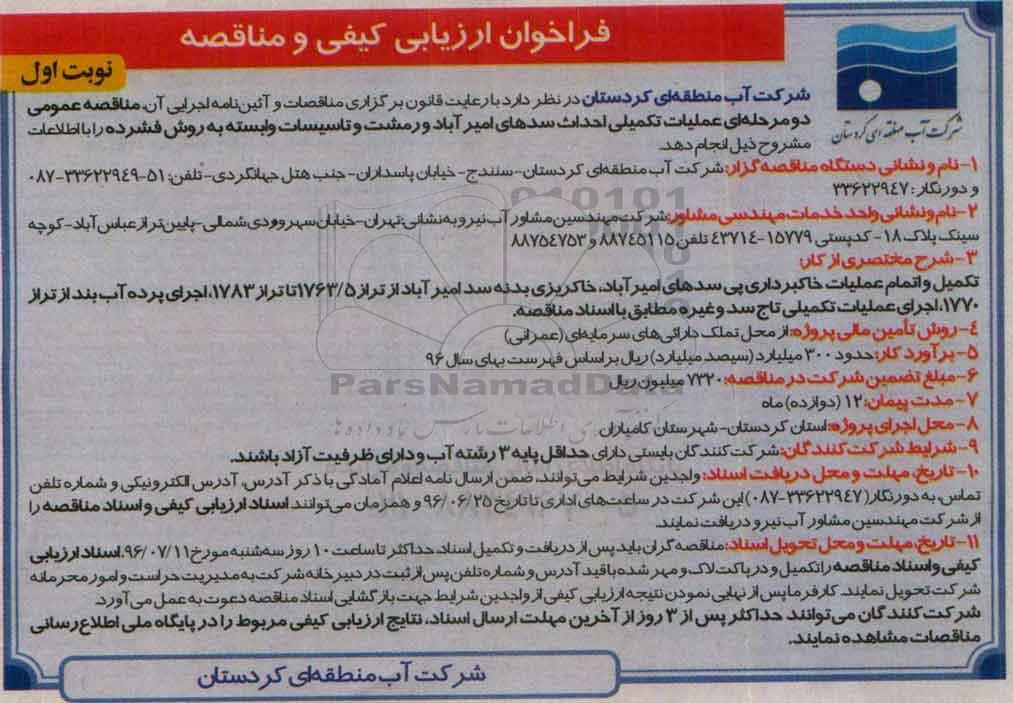 فراخوان ارزیابی کیفی و مناقصه
نوبت اول
شرکت آب منطقه‌ای کردستان
شرکت آب منطقه‌ای کردستان در نظر دارد با رعایت قانون برگزاری مناقصات و آئین‌نامه اجرایی آن، مناقصه عمومی
دو مرحله‌ای عملیات تکمیلی احداث سدهای امیر آباد و رمشت و تاسیسات وابسته به روش فشرده را با اطلاعات
مشروح ذیل انجام دهد.
۱- نام و نشانی دستگاه مناقصه گزار: شرکت آب منطقه‌ای کردستان- سنندج- خیابان پاسداران- جنب هتل جهانگردی- تلفن: ۵۱-۳۳۶۲۲۹۴۹-۰۸۷
و دورنگار: ۳۳۶۲۲۹۴۷
۲- نام و نشانی واحد خدمات مهندسی مشاور: شرکت مهندسین مشاور آب نیرو به نشانی: تهران- خیابان سهروردی شمالی- پایین‌تر از عباس آباد- کوچه
سینک پلاک ۱۸- کدپستی ۱۵۷۷۹-۴۳۷۱۴ تلفن ۸۸۷۴۵۱۱۵ و ۸۸۷۵۴۷۵۳
۳- شرح مختصری از کار:
تکمیل و اتمام عملیات خاکبرداری پی سدهای امیر آباد، خاکریزی بدنه سد امیر آباد از تراز ۱۷۶۳/۵ تا تراز ۱۷۸۳، اجرای پرده آب بند از تراز
۱۷۷۰، اجرای عملیات تکمیلی تاج سد و غیره مطابق با اسناد مناقصه.
۴- روش تأمین مالی پروژه: از محل تملک دارائی‌های سرمایه‌ای (عمرانی)
۵- برآورد کار: حدود ۳۰۰ میلیارد (سیصد میلیارد) ریال بر اساس فهرست بهای سال ۹۶
۶- مبلغ تضمین شرکت در مناقصه: ۷۳۲۰ میلیون ریال
۷- مدت پیمان: ۱۲ (دوازده) ماه
۸- محل اجرای پروژه: استان کردستان- شهرستان کامیاران
۹- شرایط شرکت کنندگان: شرکت کنندگان بایستی دارای حداقل پایه ۳ رشته آب و دارای ظرفیت آزاد باشند.
۱۰- تاریخ، مهلت و محل دریافت اسناد: واجدین شرایط می‌توانند، ضمن ارسال نامه اعلام آمادگی با ذکر آدرس، آدرس الکترونیکی و شماره تلفن
تماس، به دورنگار (۳۳۶۲۲۹۴۷-۰۸۷) این شرکت در ساعت‌های اداری تا تاریخ ۹۶/۰۶/۲۵ و همزمان می‌توانند اسناد ارزیابی کیفی و اسناد مناقصه را
از شرکت مهندسین مشاور آب نیرو دریافت نمایند.
۱۱- تاریخ، مهلت و محل تحویل اسناد: مناقصه گران باید پس از دریافت و تکمیل اسناد، حداکثر تا ساعت ۱۰ روز سه‌شنبه مورخ ۹۶/۰۷/۱۱، اسناد ارزیابی
کیفی و اسناد مناقصه را تکمیل و در پاکت لاک و مهر شده با قید آدرس و شماره تلفن پس از ثبت در دبیرخانه شرکت به مدیریت حراست و امور محرمانه
شرکت تحویل نمایند. کارفرما پس از نهایی نمودن نتیجه ارزیابی کیفی از واجدین شرایط جهت بازگشایی اسناد مناقصه دعوت به عمل می‌آورد.
شرکت کنندگان می‌توانند حداکثر پس از ۳ روز از آخرین مهلت ارسال اسناد، نتایج ارزیابی کیفی مربوط را در پایگاه ملی اطلاع رسانی
مناقصات مشاهده نمایند.
شرکت آب منطقه‌ای کردستان
ParsNamadData